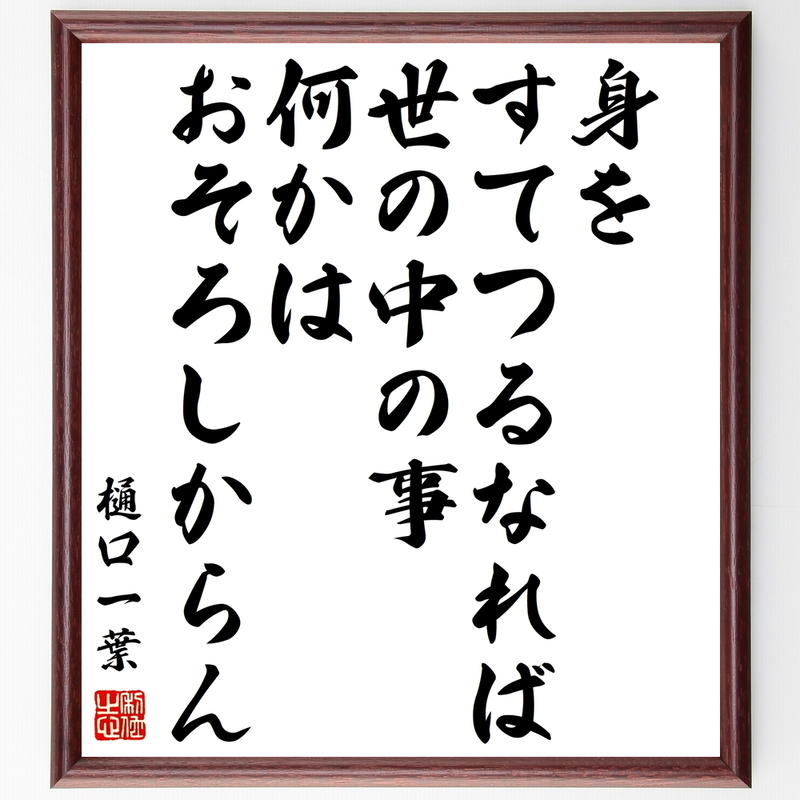 身を
すてつるなれば
世の中の事
何かは
おそろしからん
樋口一葉